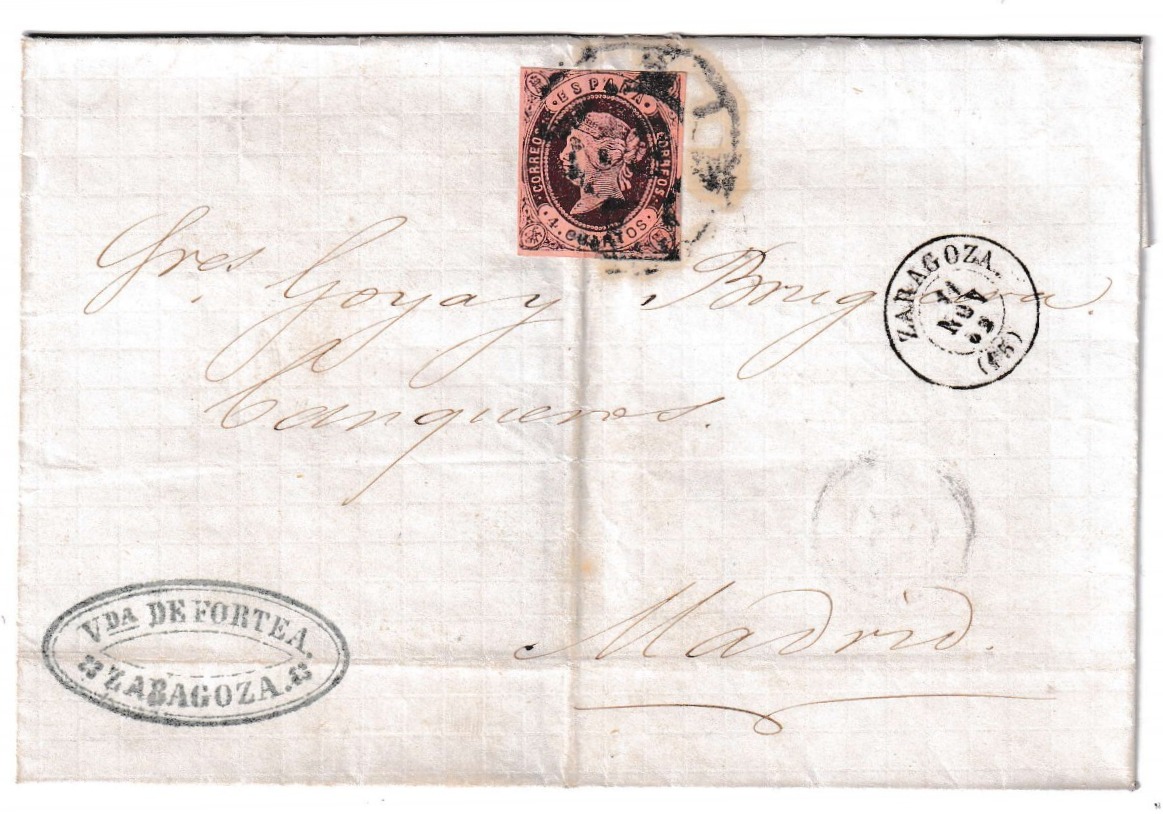 ESPAÑA
CORREOS
CORREOS
4. CUARTOS.
Sres Goya y Brug
Banqueros.
ZARAGOZA.
NOV
Madrid.
VDA DE FORTEA.
ZARAGOZA.